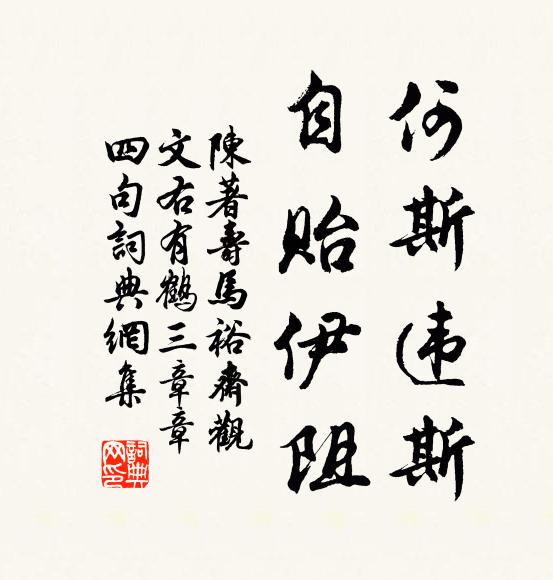 何斯违斯
自贻伊阻
陳著壽馬裕齋觀
文右有鶴三章章
四句詞典網集
詞典
网印